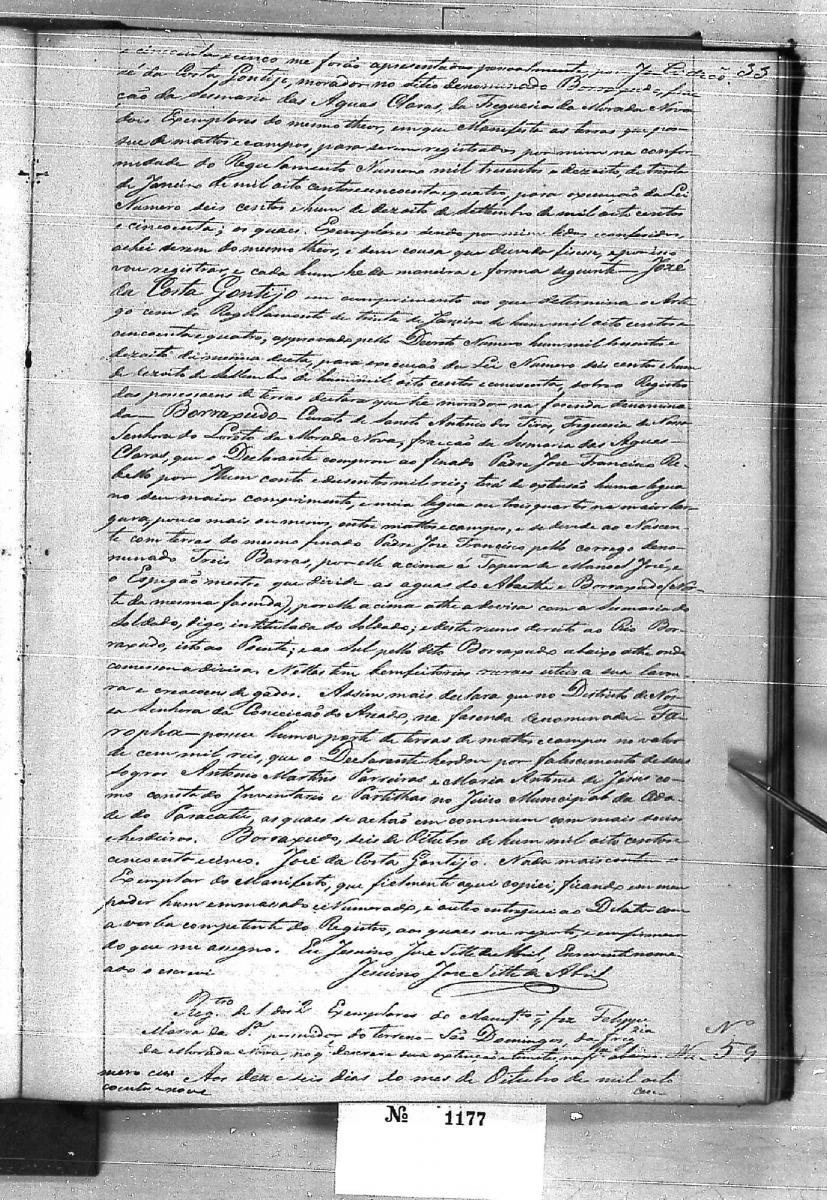 e cincoenta e cinco me forão apresentados pessoalmente por Jo- 33
sé da Costa Gontijo, morador no sitio denominado Borraxudo, frac
ção da Sesmaria das Agoas Claras, da Freguesia da Morada Nova
dois Exemplares do mesmo theor, em que Manifesta as terras que pos-
sue de mattos e campos, para serem registrados por mim na confor-
midade do Regulamento Numero mil tresentos e dezoito, de trinta
de Janeiro de mil oito centos e cincoenta e quatro, para execução da Lei
Numero seis centos e hum de dezoito de Settembro de mil oito centos
e cincoenta; os quaes Exemplares sendo por mim lidos e conferidos,
achei serem do mesmo theor, e sem cousa que duvida fisesse, e por isso
vou registrar, e cada hum he da maneira e forma seguinte - José
da Costa Gontijo em cumprimento ao que determina o Arti-
go cem do Regulamento de trinta de Janeiro de hum mil oito centos e
cincoenta e quatro, approvado pello Decreto Numero hum mil tresentos e
dezoito da mesma data, para execução da Lei Numero seis centos e hum
de dezoito de Settembro de hum mil oito centos e cincoenta, sobre o Registro
das possessoens de terras declara que he morador na fasenda denomina
da - Borraxudo - Curato de Santo Antonio dos Tiros, Freguesia de Nossa
Senhora do Loreto da Morada Nova, fracção da Sesmaria das Agoas
Claras, que o Declarante comprou ao finado Padre José Francisco Re-
bello por Hum conto e dusentos mil reis; terá de extensão huma legoa
no seu maior comprimento, e meia legoa ou tres quartos na maior lar-
gura, pouco mais ou menos, entre mattos e campos, e se divide ao Nascen-
te com terras do mesmo finado Padre José Francisco pello corrego deno-
minado Tres Barras, por elle acima á Tapera de Manoel José, e
o Espigão mestre que divide as agoas do Abaethe e Borraxudo (Nor-
te da mesma fasenda), por elle acima athe a devisa com a Sesmaria do
Soldado, digo, intitulada do Soldado; e deste rumo direito ao Rio Bor-
raxudo, isto ao Poente; e ao Sul pello dito Borraxudo abaixo athe onde
comessou a divisa. Nellas tem bemfeitorias ruraes uteis a sua lavou
ra e creacoens de gados. Assim mais declara que no Districto de Nos-
sa Senhora da Conceição do Areado, na fasenda denominada - Fa-
ropha - possue huma parte de terras de mattos e campos no valor
de cem mil reis, que o Declarante herdou por falescimento de seus
sogros Antonio Martins Parreiras e Maria Antonia de Jesus co-
mo consta do Inventario e Partilhas no Juiso Municipal da Cida-
de do Paracatú, as quaes se achão em commum com mais socios
e herdeiros. Borraxudo, seis de Oitubro de hum mil oito centos e
cincoenta e cinco. José da Costa Gontijo. Nada mais contem o
Exemplar do Manifesto, que fielmente aqui copiei, ficando em meu
poder hum emmassado e Numerado, e outro entreguei ao Dilator com
a verba competente do Registro, aos quaes me reporto e em firmesa
do que me assigno. Eu Jesuino José Sette de Abril, Escrevente nome-
ado o escrevi
Jesuino Jose Sette de Abril
Reg.tro de 1 dos 2 Exemplares do Manif.to q faz Felippe
possuidor do terreno - São Domingos, da Freg.zia Nº
da Morada Nova, no q descreve sua extenção 59
mero cin Aos dez e seis dias do mes de Oitubro de mil oito
coenta e nove cen-
Nº 1177